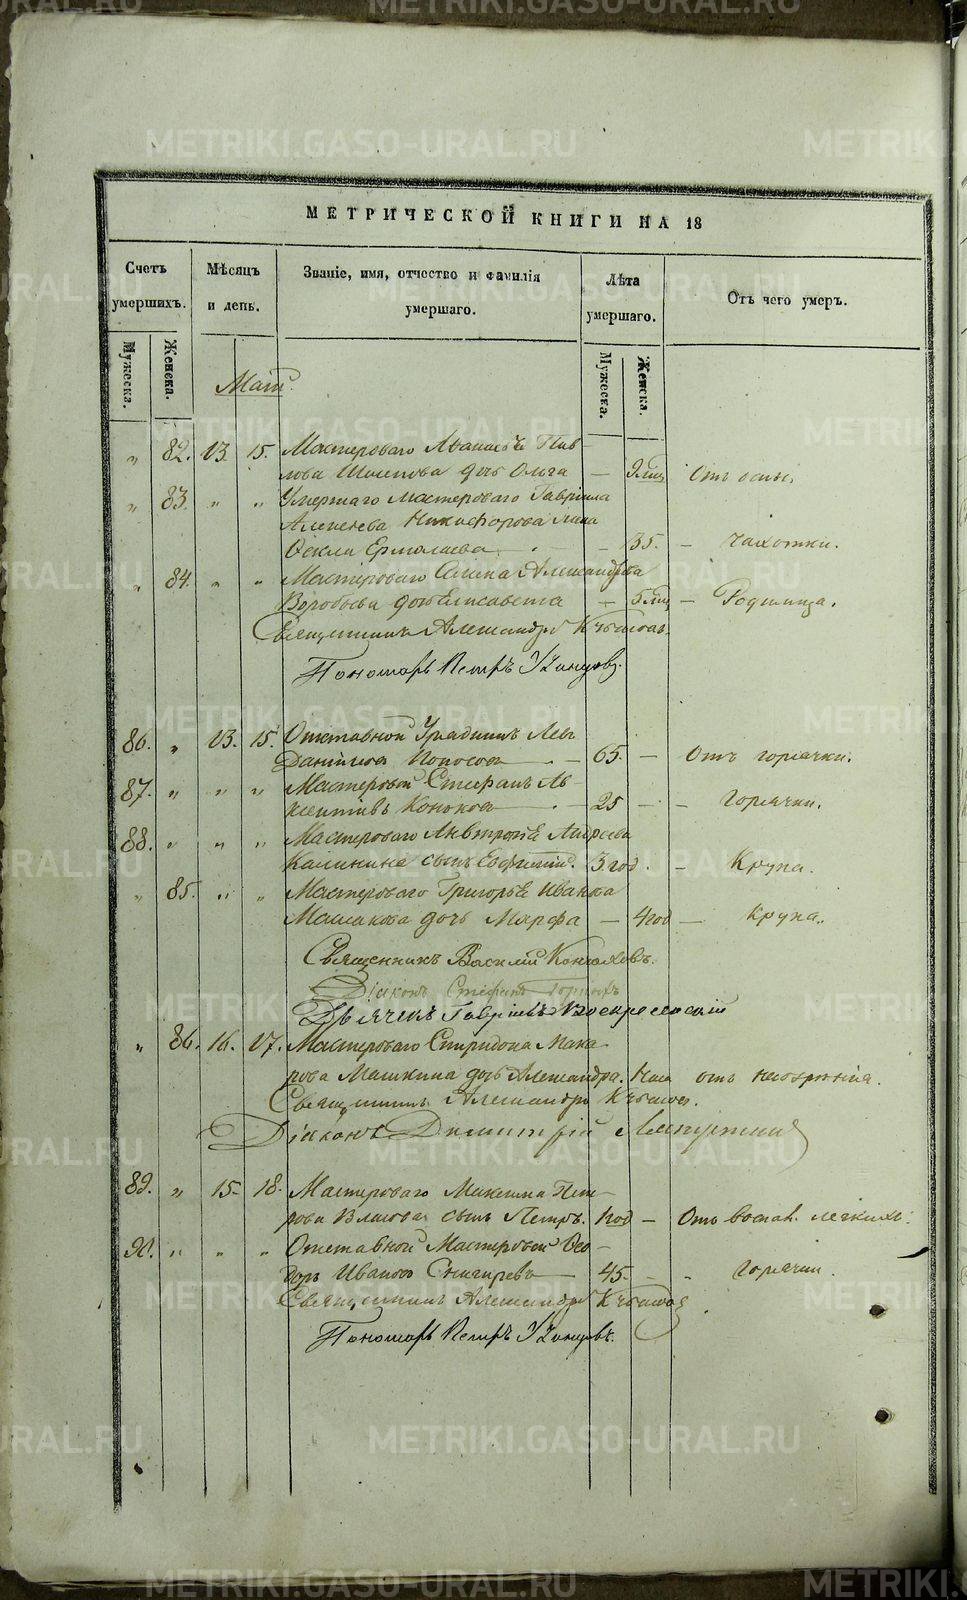 METRIKI.GASO-URAL.RU
МЕТРИЧЕСКОЙ КНИГИ НА 18
Счетъ умершихъ.
Мѣсяцъ и день.
Званіе, имя, отчество и фамилія умершаго.
Лѣта умершаго.
Отъ чего умеръ.
Мужеска.
Женска.
Мужеска.
Женска.
Маій.
„ 82. 13. 15. Мастероваго Аѳанасья Пав-
лова дочь Ольга — Отъ оспы.
„ 83. „ „ Умершаго мастероваго Гавріила
Алексеева Никифорова жена
Ѳекла Ермолаева — 35. — Чахотки.
„ 84. „ „ Мастероваго Семена Александрова
Воробьева дочь Елисавета — 5 мѣс — Родимца.
Священникъ Александръ
Пономарь Петръ
86. „ 13. 15. Отставной Урядникъ Левъ
Даниловъ — 65. — Отъ горячки.
87. „ „ „ Мастеровой Стефанъ Ав-
Коноховъ — 25 — Горячки.
88. „ „ „ Мастероваго Андреева
Калинина сынъ Евфимій. 3 год. — Крупа.
„ 85. „ „ Мастероваго Григорья Иванова
Машакова дочь Марфа — 4 год — Крупа.
Священникъ Василій
Діаконъ Стефанъ
Дьячекъ Гавріилъ Воскресенскій
„ 86. 16. 17. Мастероваго Спиридона Мака-
рова Машкина дочь Александра.
Священникъ Александръ
Діаконъ Димитрій
89. „ 15. 18. Мастероваго Максима Пет-
рова Власова сынъ Петръ. 1 год — Отъ воспал. легкихъ.
90. „ „ „ Отставной Мастеровой Ѳео-
доръ Ивановъ Снигиревъ — 45. — Горячки.
Священникъ Александръ
Пономарь Петръ